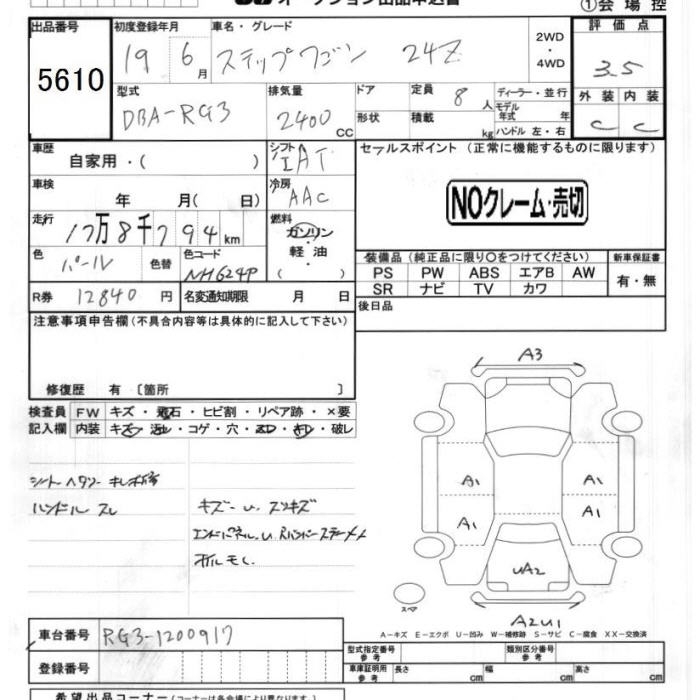 オークション出品申込書
①会場控
出品番号 初度登録年月 車名・グレード 評価点
5610 19 6月 ステップワゴン 24Z 2WD・4WD 3.5
型式 排気量 ドア 定員 ディーラー・並行 外装 内装
DBA-RG3 2400 CC 8人 モデル年式 年 C C
形状 積載 kg ハンドル 左・右
車歴 自家用・( ) シフト IAT セールスポイント (正常に機能するものに限ります)
車検 年 月( 日) 冷房 AAC NOクレーム・売切
走行 17万8千794km 燃料 ガソリン 軽油 ( )
色 パール 色替 色コード NH624P
装備品 (純正品に限り○をつけてください) 新車保証書
PS PW ABS エアB AW 有・無
SR ナビ TV カワ
R券 12840円 名変通知期限 月 日 後日品
注意事項申告欄 (不具合内容等は具体的に記入して下さい)
修復歴 有 〔箇所 〕
検査員 FW キズ・飛石・ヒビ割・リペア跡・×要
記入欄 内装 キズ・汚れ・コゲ・穴・スレ・キレ・破レ
シートヘタリー キレ補修
ハンドル スレ
キズー U. スリキズ
エンドパネル.U. Rバンパーステーメメ
オイルモレ
A3
A1 A1
A1 A1
UA2
スペア
A2U1
A－キズ E－エクボ U－凹み W－補修跡 S－サビ C－腐食 XX－交換済
車台番号 RG3-1200917
登録番号
型式指定番号 参考 類別区分番号 参考
車庫証明用 参考 長さ cm 幅 cm 高さ cm
希望出品コーナー (コーナーは各会場により異なります)